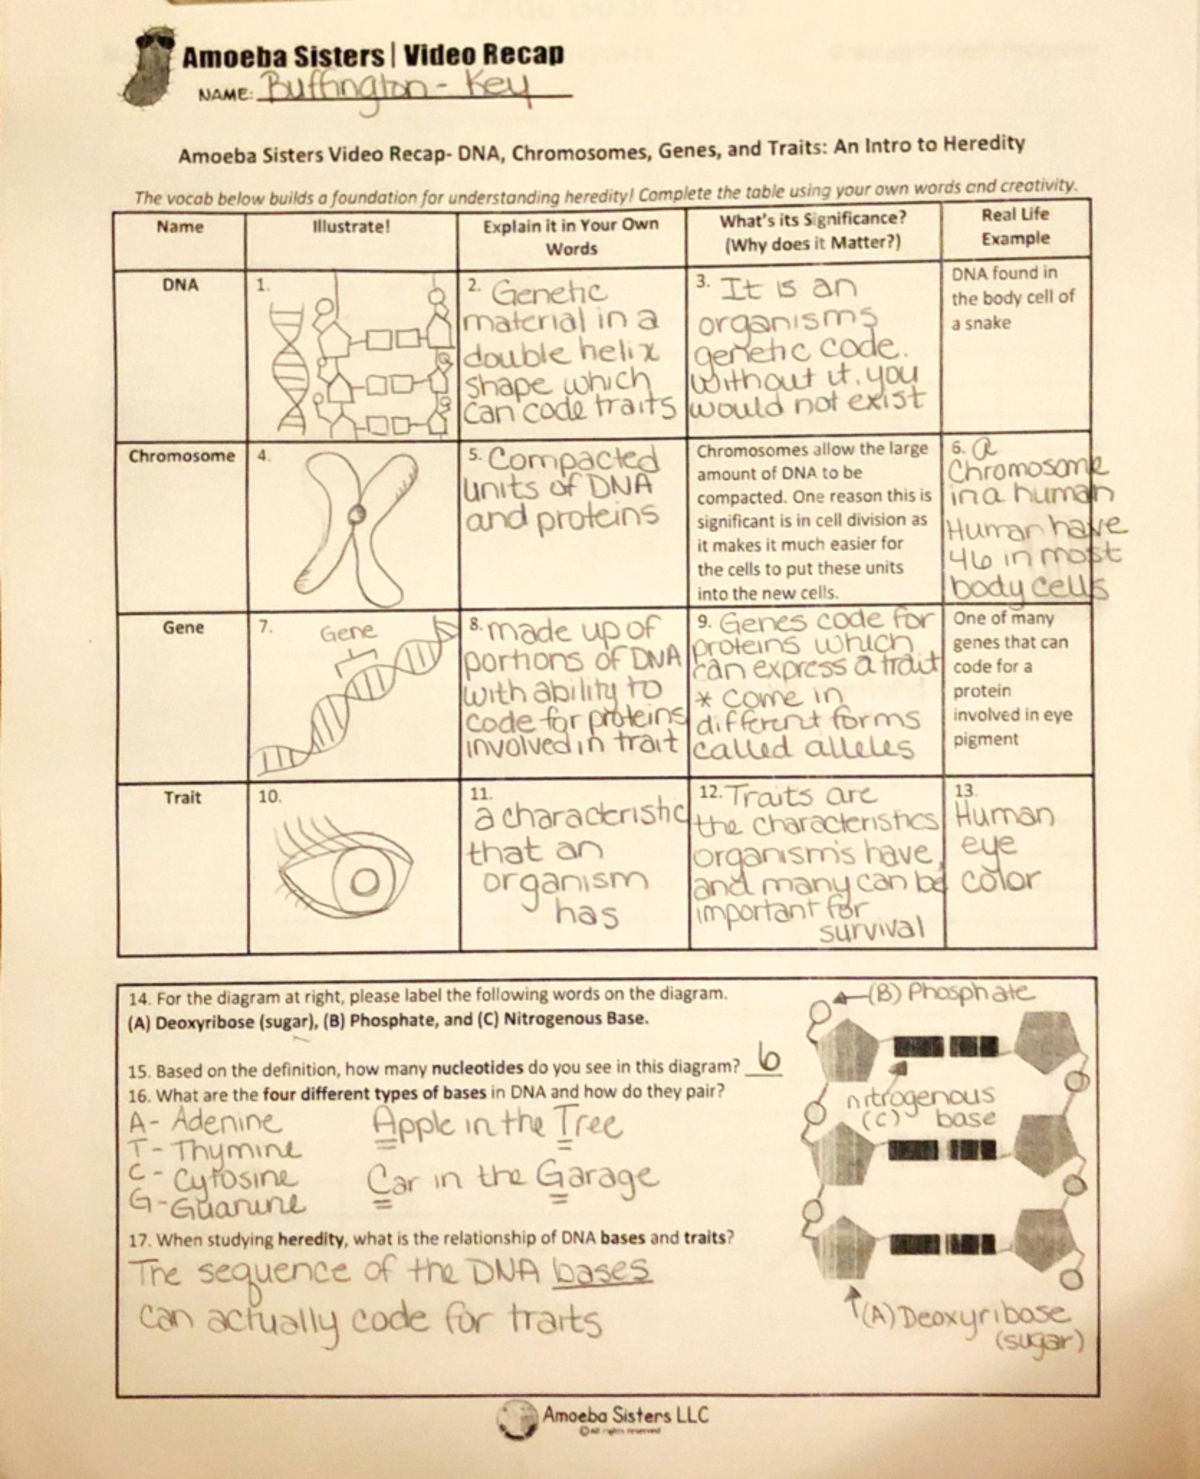 Amoeba Sisters | Video Recap
NAME: Buffington - Key
Amoeba Sisters Video Recap- DNA, Chromosomes, Genes, and Traits: An Intro to Heredity
The vocab below builds a foundation for understanding heredity! Complete the table using your own words and creativity.
Name
Illustrate!
Explain it in Your Own
Words
What's its Significance?
(Why does it Matter?)
Real Life
Example
DNA
1.
2. Genetic
material in a
double helix
shape which
can code traits
3. It is an
organisms
genetic code.
Without it, you
would not exist
DNA found in
the body cell of
a snake
Chromosome
4.
5. Compacted
units of DNA
and proteins
Chromosomes allow the large
amount of DNA to be
compacted. One reason this is
significant is in cell division as
it makes it much easier for
the cells to put these units
into the new cells.
6. a
Chromosome
in a human
Human have
46 in most
body cells
Gene
7.
Gene
8. made up of
portions of DNA
with ability to
code for proteins
involved in trait
9. Genes code for
proteins which
can express a trait
* come in
different forms
called alleles
One of many
genes that can
code for a
protein
involved in eye
pigment
Trait
10.
11.
a characteristic
that an
organism
has
12. Traits are
the characteristics
organism's have,
and many can be
important for
survival
13.
Human
eye
color
14. For the diagram at right, please label the following words on the diagram.
(A) Deoxyribose (sugar), (B) Phosphate, and (C) Nitrogenous Base.
(B) Phosphate
15. Based on the definition, how many nucleotides do you see in this diagram? 6
nitrogenous
(C) base
16. What are the four different types of bases in DNA and how do they pair?
A- Adenine
T- Thymine
C- Cytosine
G- Guanine
Apple in the Tree
Car in the Garage
17. When studying heredity, what is the relationship of DNA bases and traits?
The sequence of the DNA bases
can actually code for traits
(A) Deoxyribose
(sugar)
Amoeba Sisters LLC
©All rights reserved